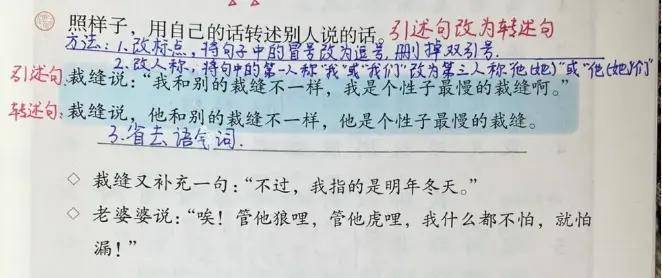 照样子，用自己的话转述别人说的话。引述句改为转述句
方法：1.改标点，将句子中的冒号改为逗号，删掉双引号。
2.改人称，将句中的第一人称“我”或“我们”改为第三人称“他(她)”或“他(她)们”
引述句：裁缝说：“我和别的裁缝不一样，我是个性子最慢的裁缝啊。”
转述句：裁缝说，他和别的裁缝不一样，他是个性子最慢的裁缝。
3.省去语气词.
◇ 裁缝又补充一句：“不过，我指的是明年冬天。”
◇ 老婆婆说：“唉！管他狼哩，管他虎哩，我什么都不怕，就怕
漏！”